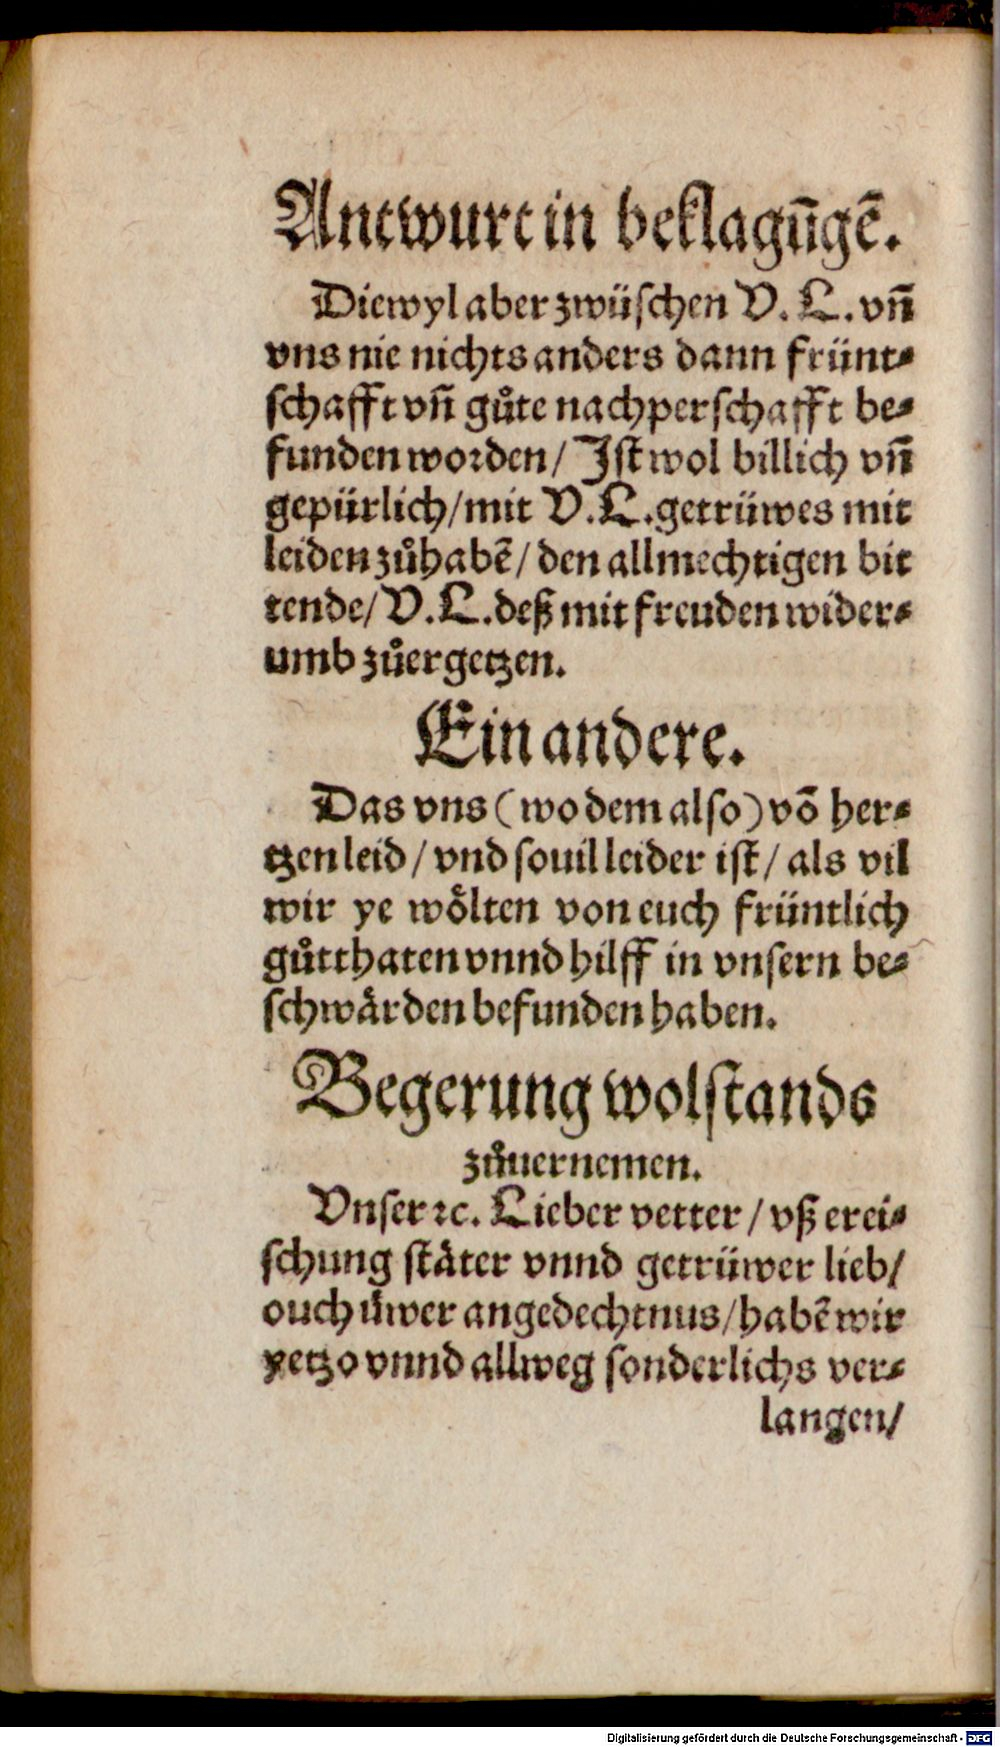 Antwurt in beklagūgē.
Diewyl aber zwüschen V. L. vn̄
vns nie nichts anders dann frünt⸗
schafft vn̄ gůte nachperschafft be⸗
funden worden / Ist wol billich vn̄
gepürlich / mit V. L. getrüwes mit
leiden zůhabē / den allmechtigen bit
tende / V. L. deß mit freuden wider⸗
umb zůergetzen.
Ein andere.
Das vns (wo dem also) vō her⸗
tzen leid / vnd souil leider ist / als vil
wir ye woͤlten von euch früntlich
gůtthaten vnnd hilff in vnsern be⸗
schwaͤrden befunden haben.
Begerung wolstands
zůuernemen.
Vnser ꝛc. Lieber vetter / vß erei⸗
schung staͤter vnnd getrüwer lieb /
ouch üwer angedechtnus / habē wir
yetzo vnnd allweg sonderlichs ver⸗
langen /
Digitalisierung gefördert durch die Deutsche Forschungsgemeinschaft - DFG